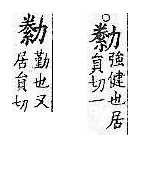 強健也居
員切一
勤也又
居員切